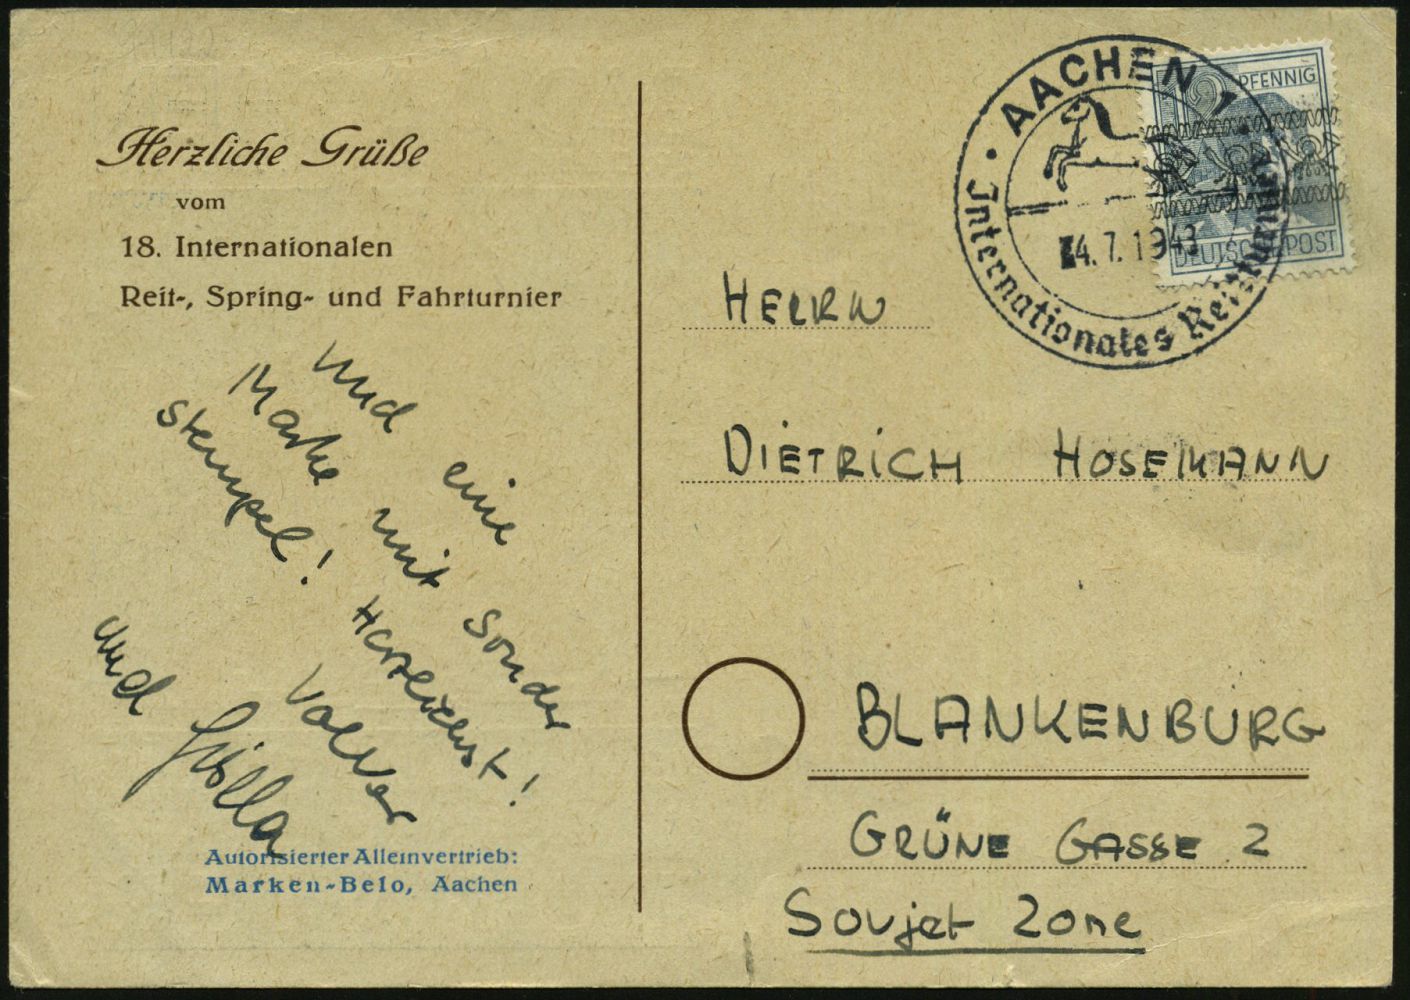 Herzliche Grüße
vom
18. Internationalen
Reit-, Spring- und Fahrturnier
und eine
Marke mit Sonder
stempel! Herzlichst!
Volker
und Gisela
Autorisierter Alleinvertrieb:
Marken-Belo, Aachen
AACHEN 1
Internationales Reitturnier
4.7.194
12 PFENNIG
DEUTSCHE POST
HERRN
DIETRICH HOSEMANN
BLANKENBURG
GRÜNE GASSE 2
Sovjet Zone